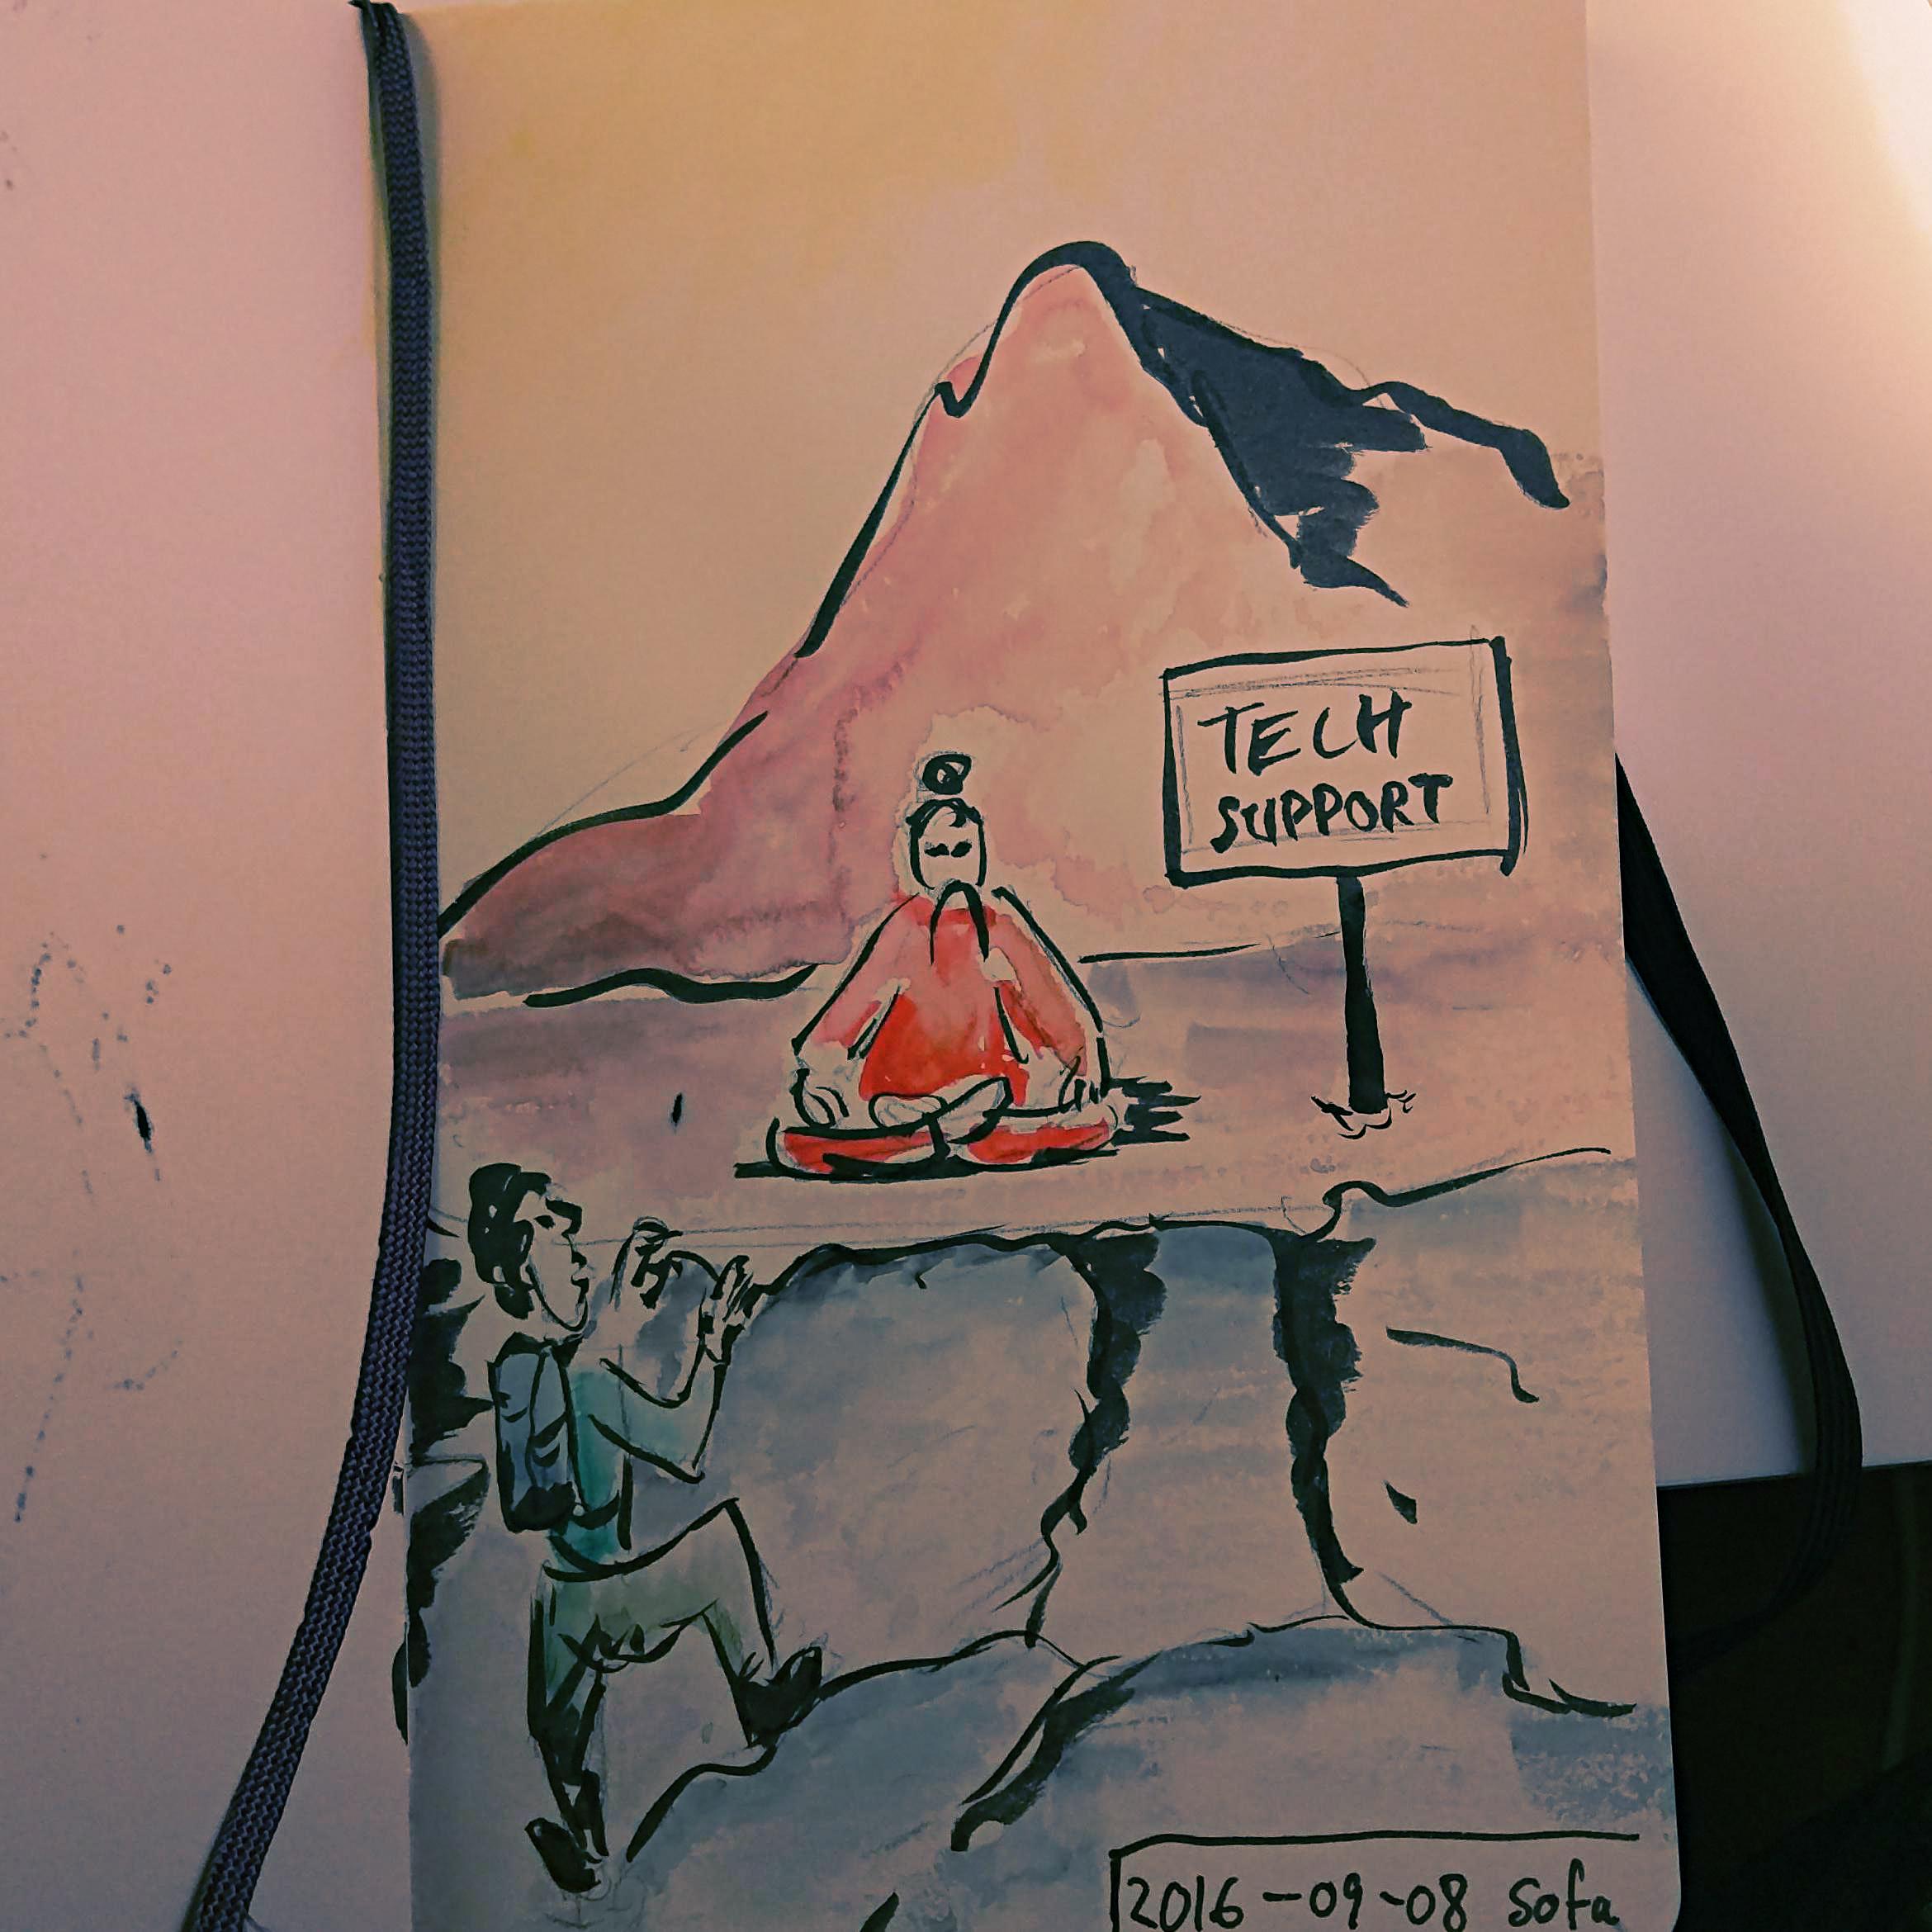 TECH
SUPPORT
2016-09-08 Sofa